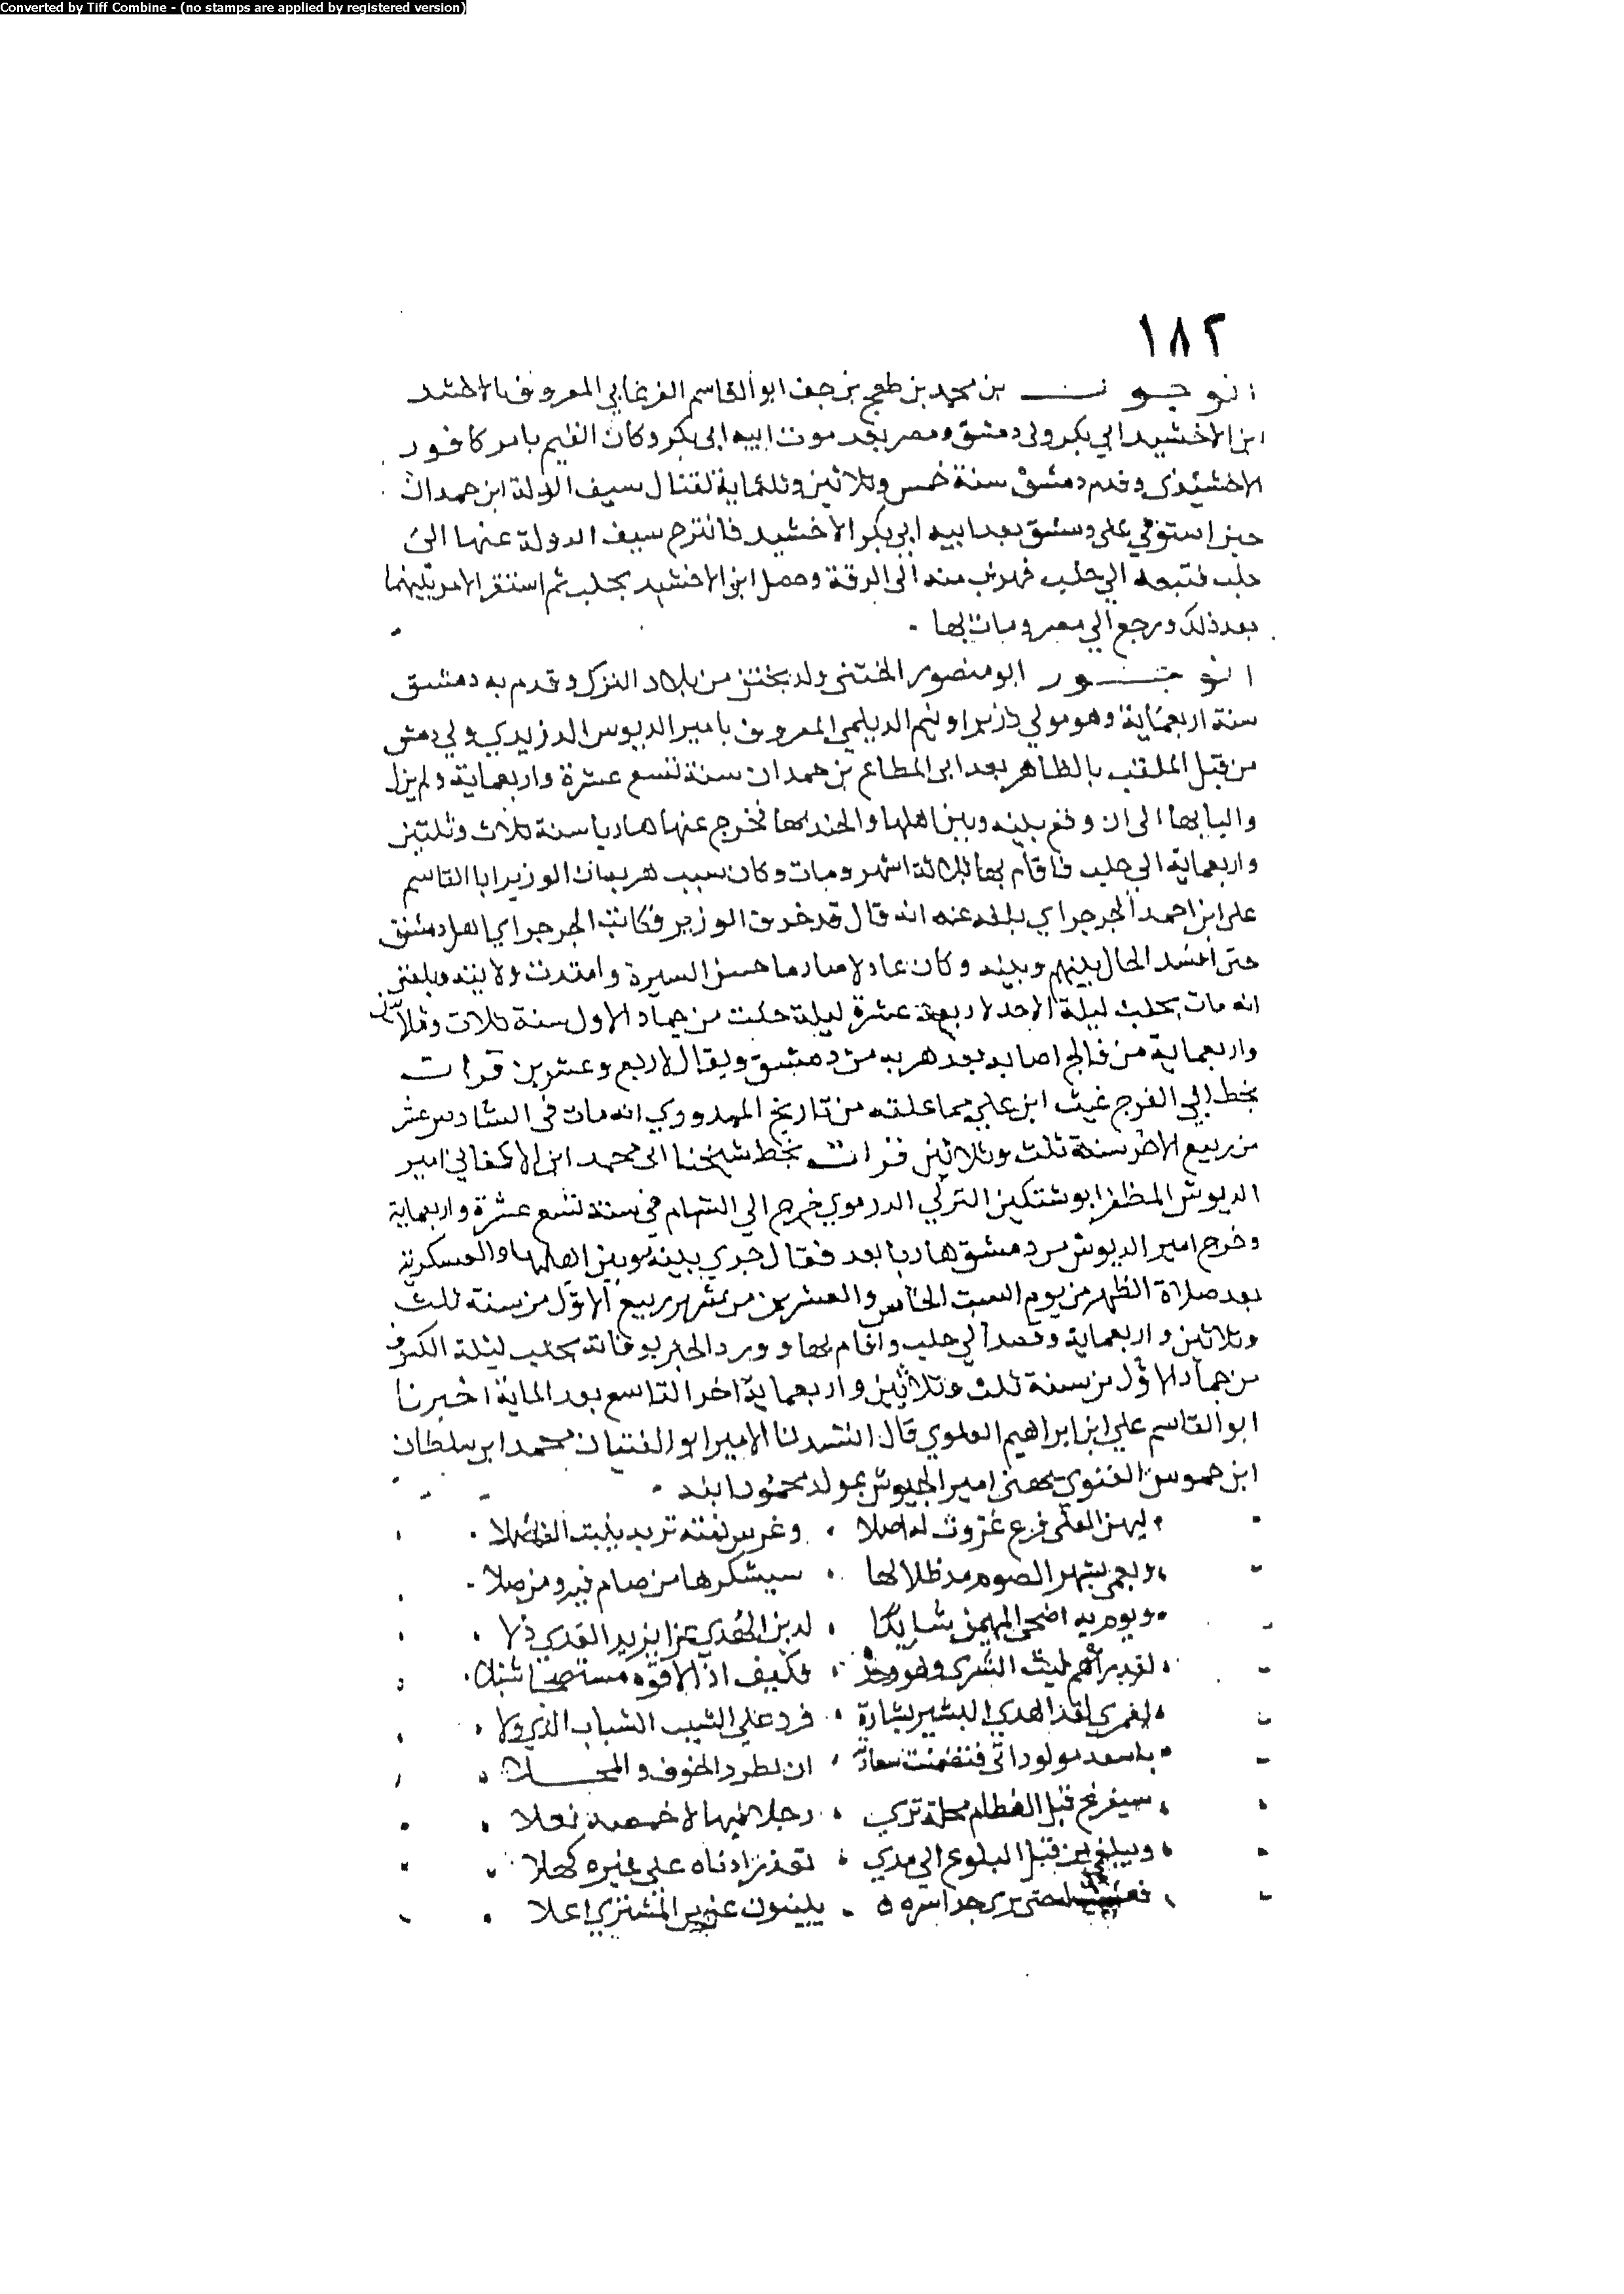 Converted by Tiff Combine - (no stamps are applied by registered version)
١٨٢
انوجوت بن محمد بن طغج بن جف ابو القاسم الفرغاني المعروف بالاخشد
ابن الاخشيد ابي بكر ولي دمشق ومصر بعد موت ابيه ابي بكر وكان القيم بامر كافور
الاخشيذي وقدم دمشق سنة خمس وثلاثين وثلثماية لقتال سيف الدولة ابن حمدان
حين استوفي على دمشق بعد ابيه ابي بكر الاخشيد فانتزح سيف الدولة عنها الى
حلب فتبعه الي حلب فهرب منه الى الرقة وحصل ابن الاخشيد بحلب ثم استقر الامر بينهما
بعد ذلك ورجع الي مصر ومات بها
انوجتور ابو منصور الختني ولد بختن من بلاد الترك وقدم به دمشق
سنة اربعماية وهو مولي دزبر اونيم الديلمي المعروف بامير الديوس الدزيدي ولي دمشق
من قبل الملقب بالظاهر بعد ابي المطاع بن حمدان سنة تسع عشرة واربعماية ولم يزل
واليا بها الى ان وقع بينه وبين اهلها والجند بها فخرج عنها هاربا سنة ثلاث وثلثين
واربعماية الي حلب فاقام بها ثلاثة اشهر ومات وكان سبب هربه ان الوزير ابا القاسم
علي ابن احمد الجرجراي بلغه عنه انه قال قد خرق الوزير فكاتب الجرجراي اهل دمشق
حتى افسد الحال بينهم وبينه وكان عادلا صارما حسن السيرة وامتدت ولايته وبلغني
انه مات بحلب ليلة الاحد لاربعة عشرة ليلة خلت من جماد الاول سنة ثلاث وثلاثين
واربعماية من فالج اصابه بعد هربه من دمشق ويقال لاربع وعشرين قرات
بخط ابي الفرج غيث ابن علي مما علقه من تاريخ المهدووي انه مات في السادس عشر
من ربيع الاخر سنة ثلث وثلاثين قرات بخط شيخنا ابي محمد ابن الاكفاني امير
الديوش المظفر ابوشتكين التركي الدرموي خرج الي الشام في سنة تسع عشرة واربعماية
وخرج امير الديوش من دمشق هاربا بعد فقال جري بينه وبين اهلها والعسكرية
بعد صلاة الظهر من يوم السبت الخامس والعشرين من شهر ربيع الاول من سنة ثلث
وثلاثين واربعماية وقصد الي حلب واقام بها وورد الخبر بوفاته بحلب ليلة
من جماد الاول من سنة ثلث وثلاثين واربعماية اخر التاسع بعد الماية اخبرنا
ابو القاسم علي ابن ابراهيم العلوي قال انشدنا الامير ابو الفتيان محمد ابن سلطان
ابن حموس الغنوي يهني امير الجيوش بمولد محمود ابنه
ليهن العلى فرع غروت له اصلا وغرس نفته تربه ينبت الفضلا
ونعمي بشهر الصوم مد ظلالها سيشكرها من صام فيه ومن صلا
ويوم به اضحى المهيمن شاركا لدين الهدي عزا يزيد العدي ذلا
لقد راهم ليث الشرى وهو وحده فكيف اذا لاقوه مستصحبا شبلا
لعمري لقد اهدي البشير بشارة فرد علي الشيب الشباب الذي ولا
باسعد مولود اتى فتضمنت سعادته ان لطرد الخوف والمحلا
سيفرع قبل الفطام محلة تري رجلا نيها لاخمصه نعلا
ويبلغ من قبل البلوغ الي مدي تعذر ادناه على غيره كهلا
حتى تري جد اسره يلينون عند المشتري اعلا